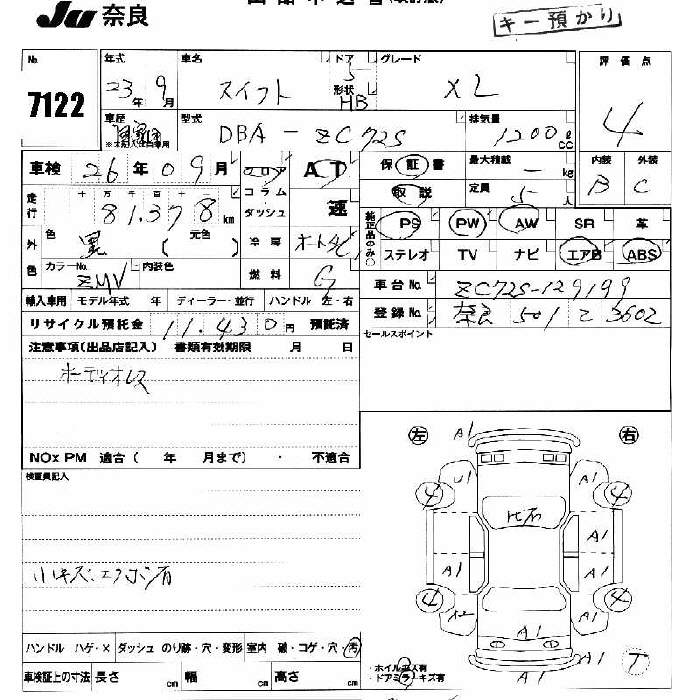 JU 奈良
キー預かり
No. 7122
年式 23年 9月
車名 スイフト
ドア 5
形状 HB
グレード XL
評価点 4
車歴 自家用
※未記入は自家用
型式 DBA-ZC72S
排気量 1200 CC
車検 26年09月
フロア コラム・ダッシュ
AT 速
保証書 取説
最大積載 - kg
定員 5人
内装 B 外装 C
走行 十万千百十 81,378 km
純正品のみ○ PS PW AW SR 革
ステレオ TV ナビ エアB ABS
外色 色 黒 元色 ( )
冷房 オートAC
カラーNo. ZMV 内装色
燃料 G
車台No. ZC72S-129199
輸入車用 モデル年式 年 ディーラー・並行 ハンドル 左・右
登録No. 奈良 501 に 3602
リサイクル預託金 11,430円 預託済
セールスポイント
注意事項(出品店記入) 書類有効期限 月 日
オーディオレス
左 A1 右
U1 A1
4 4
飛石
A1 A1
NOx PM 適合( 年 月まで)・不適合
検査員記入
A1 A1
小キズ、エクボ有
4 4
A1
A1
ハンドル ハゲ・X ダッシュ のり跡・穴・変形 室内 破・コゲ・穴・汚
車検証上の寸法 長さ cm 幅 cm 高さ cm
・ホイルカバー有
・ドアミラーキズ有
A1 T